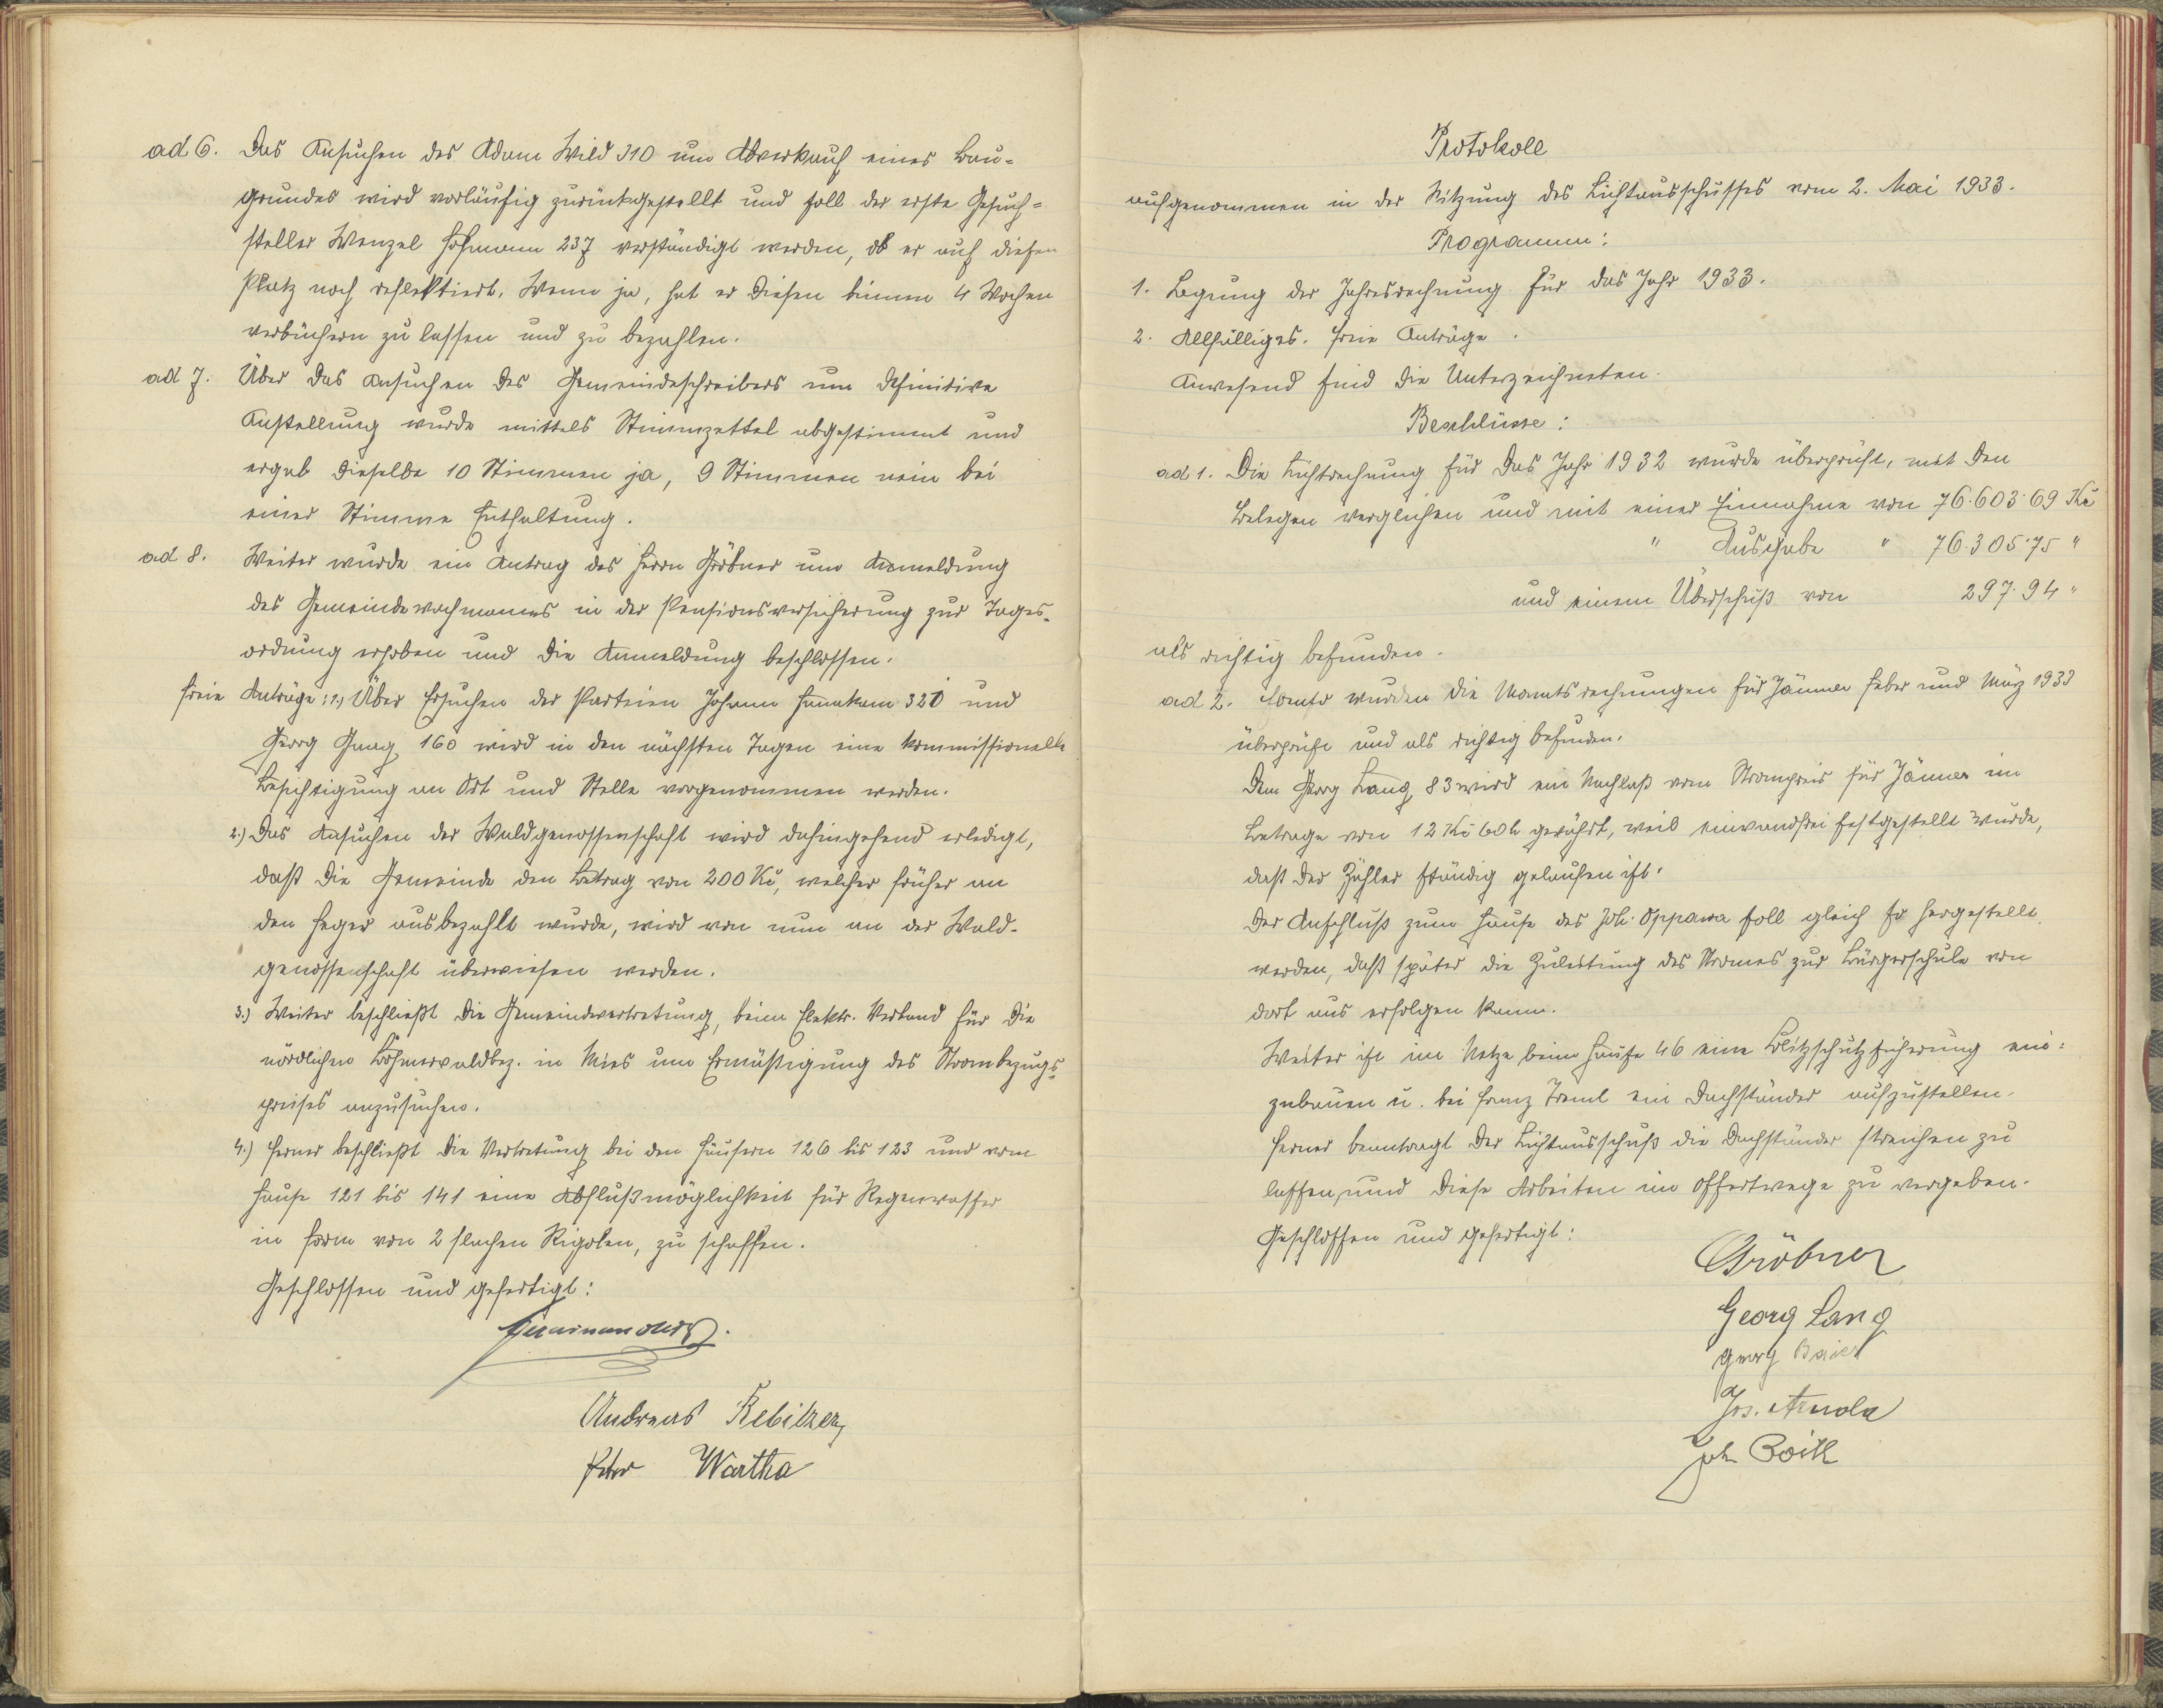 ad 6. Das Ansuchen des Adam Wild 310 um Abverkauf eines Bau-
grundes wird vorläufig zurückgestellt und soll der erste Gesuch-
steller Wenzel Hofmann 237 verständigt werden, ob er auf diesen
Platz noch reflektiert. Wenn ja, hat er diesen binnen 4 Wochen
verbüchern zu lassen und zu bezahlen.
ad 7. Über das Ansuchen des Gemeindeschreibers um definitive
Anstellung wurde mittels Stimmzettel abgestimmt und
ergab dieselbe 10 Stimmen ja, 9 Stimmen nein bei
einer Stimme Enthaltung.
ad 8. Weiter wurde ein Antrag des Herrn Gröbner um Anmeldung
des Gemeindewachmannes in der Pensionsversicherung zur Tages-
ordnung erhoben und die Anmeldung beschlossen.
Freie Anträge: 1.) Über Ersuchen der Parteien Johann 320 und
Georg Gaag 160 wird in den nächsten Tagen eine kommissionelle
Besichtigung an Ort und Stelle vorgenommen werden.
2.) Das Ansuchen der Waldgenossenschaft wird dahingehend erledigt,
daß die Gemeinde den Betrag von 200 Kč, welcher früher an
den Heger ausbezahlt wurde, wird von nun an der Wald-
genossenschaft überwiesen werden.
3.) Weiter beschließt die Gemeindevertretung, beim Elektr. Verband für die
nördlichen Böhmerwaldbez. in Mies um Ermäßigung des Strombezugs-
preises anzusuchen.
4.) Ferner beschließt die Vertretung bei den Häusern 126 bis 123 und vom
Hause 121 bis 141 eine Abflußmöglichkeit für Regenwasser
in Form von 2 flachen Rigolen, zu schaffen.
Geschlossen und gefertigt:
Andreas Rebitzer
Peter Wartha
Protokoll
aufgenommen in der Sitzung des Lichtausschusses vom 2. Mai 1933.
Programm:
1. Legung der Jahresrechnung für das Jahr 1933.
2. Allfälliges. Freie Anträge.
Anwesend sind die Unterzeichneten.
Beschlüsse:
ad 1. Die Lichtrechnung für das Jahr 1932 wurde überprüft, mit den
Belegen verglichen und mit einer Einnahme von 76.603·69 Kč
" Ausgabe " 76.305·75 "
und einem Überschuß von 297·94 "
als richtig befunden.
ad 2. wurden die Monatsrechnungen für Jänner Feber und März 1933
überprüft und als richtig befunden.
Dem Georg Lang 83 wird ein Nachlaß vom Strompreis für Jänner im
Betrage von 12 Kč 60 h gewährt, weil einwandfrei festgestellt wurde,
daß der Zähler ständig gelaufen ist.
Der Anschluß zum Hause des Joh. Oppawa soll gleich so hergestellt
werden, daß später die Zuleitung des Stromes zur Bürgerschule von
dort aus erfolgen kann.
Weiter ist im Netze beim Hause 46 eine Blitzschutzsicherung ein-
zubauen u. bei Franz Treml ein Dachständer aufzustellen.
Ferner beantragt der Lichtausschuß die Dachständer streichen zu
lassen, und diese Arbeiten im Offertwege zu vergeben.
Geschlossen und gefertigt:
Gröbner
Georg Lang
Georg Baier
Jos.
Joh.